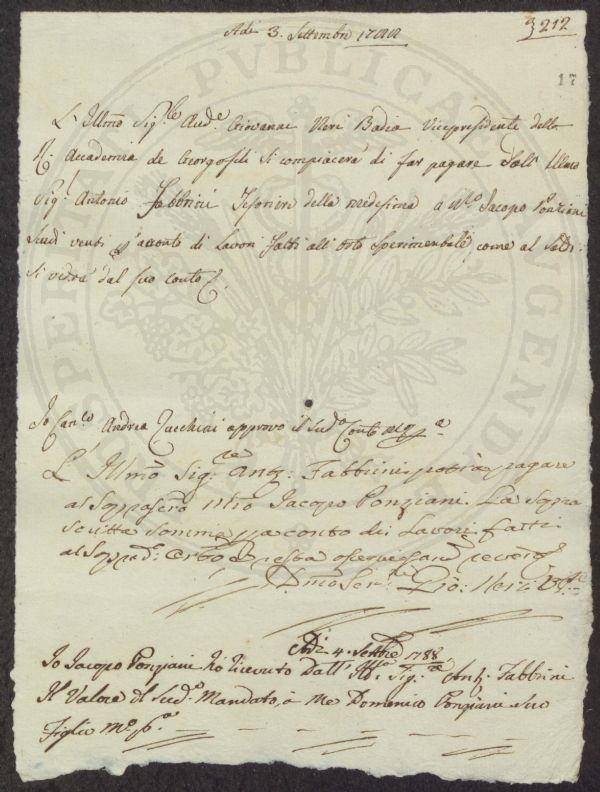 Adì 3. Settembre 1788
3212
17
L'Illmo Sigre Aud.e Giovanni Neri Badia Vicepresidente della
R. Accademia de Georgofili si compiacerà di far pagare dall' Illmo
Sig.r Antonio Fabbrini Tesoriere della medesima a M.o Jacopo Ponziani
Scudi venti p acconto di Lavori fatti all'Orto Sperimentale, come al
si vedrà dal suo conto
Io Can.co Andrea Zucchini approvo il Sud.o Conto
L'Illmo Sig.re Ant.: Fabbrini potrà pagare
al Mro Jacopo Ponziani La Sopra
scritta somma p a conto dei Lavori fatti
al Sopra d.: Orto, e resta
Dmo Ser.re Gio: Neri
Adì 4. Settbre 1788
Io Jacopo Ponziani hò riceuto Dall' Ill.o Sig.re Ant. Fabbrini
Il Valore Il Sud.o Mandato, à Me Domenico Ponziani Suo
Figlio M.o p.o
PROSPERITATI PVBLICAE AVGENDAE